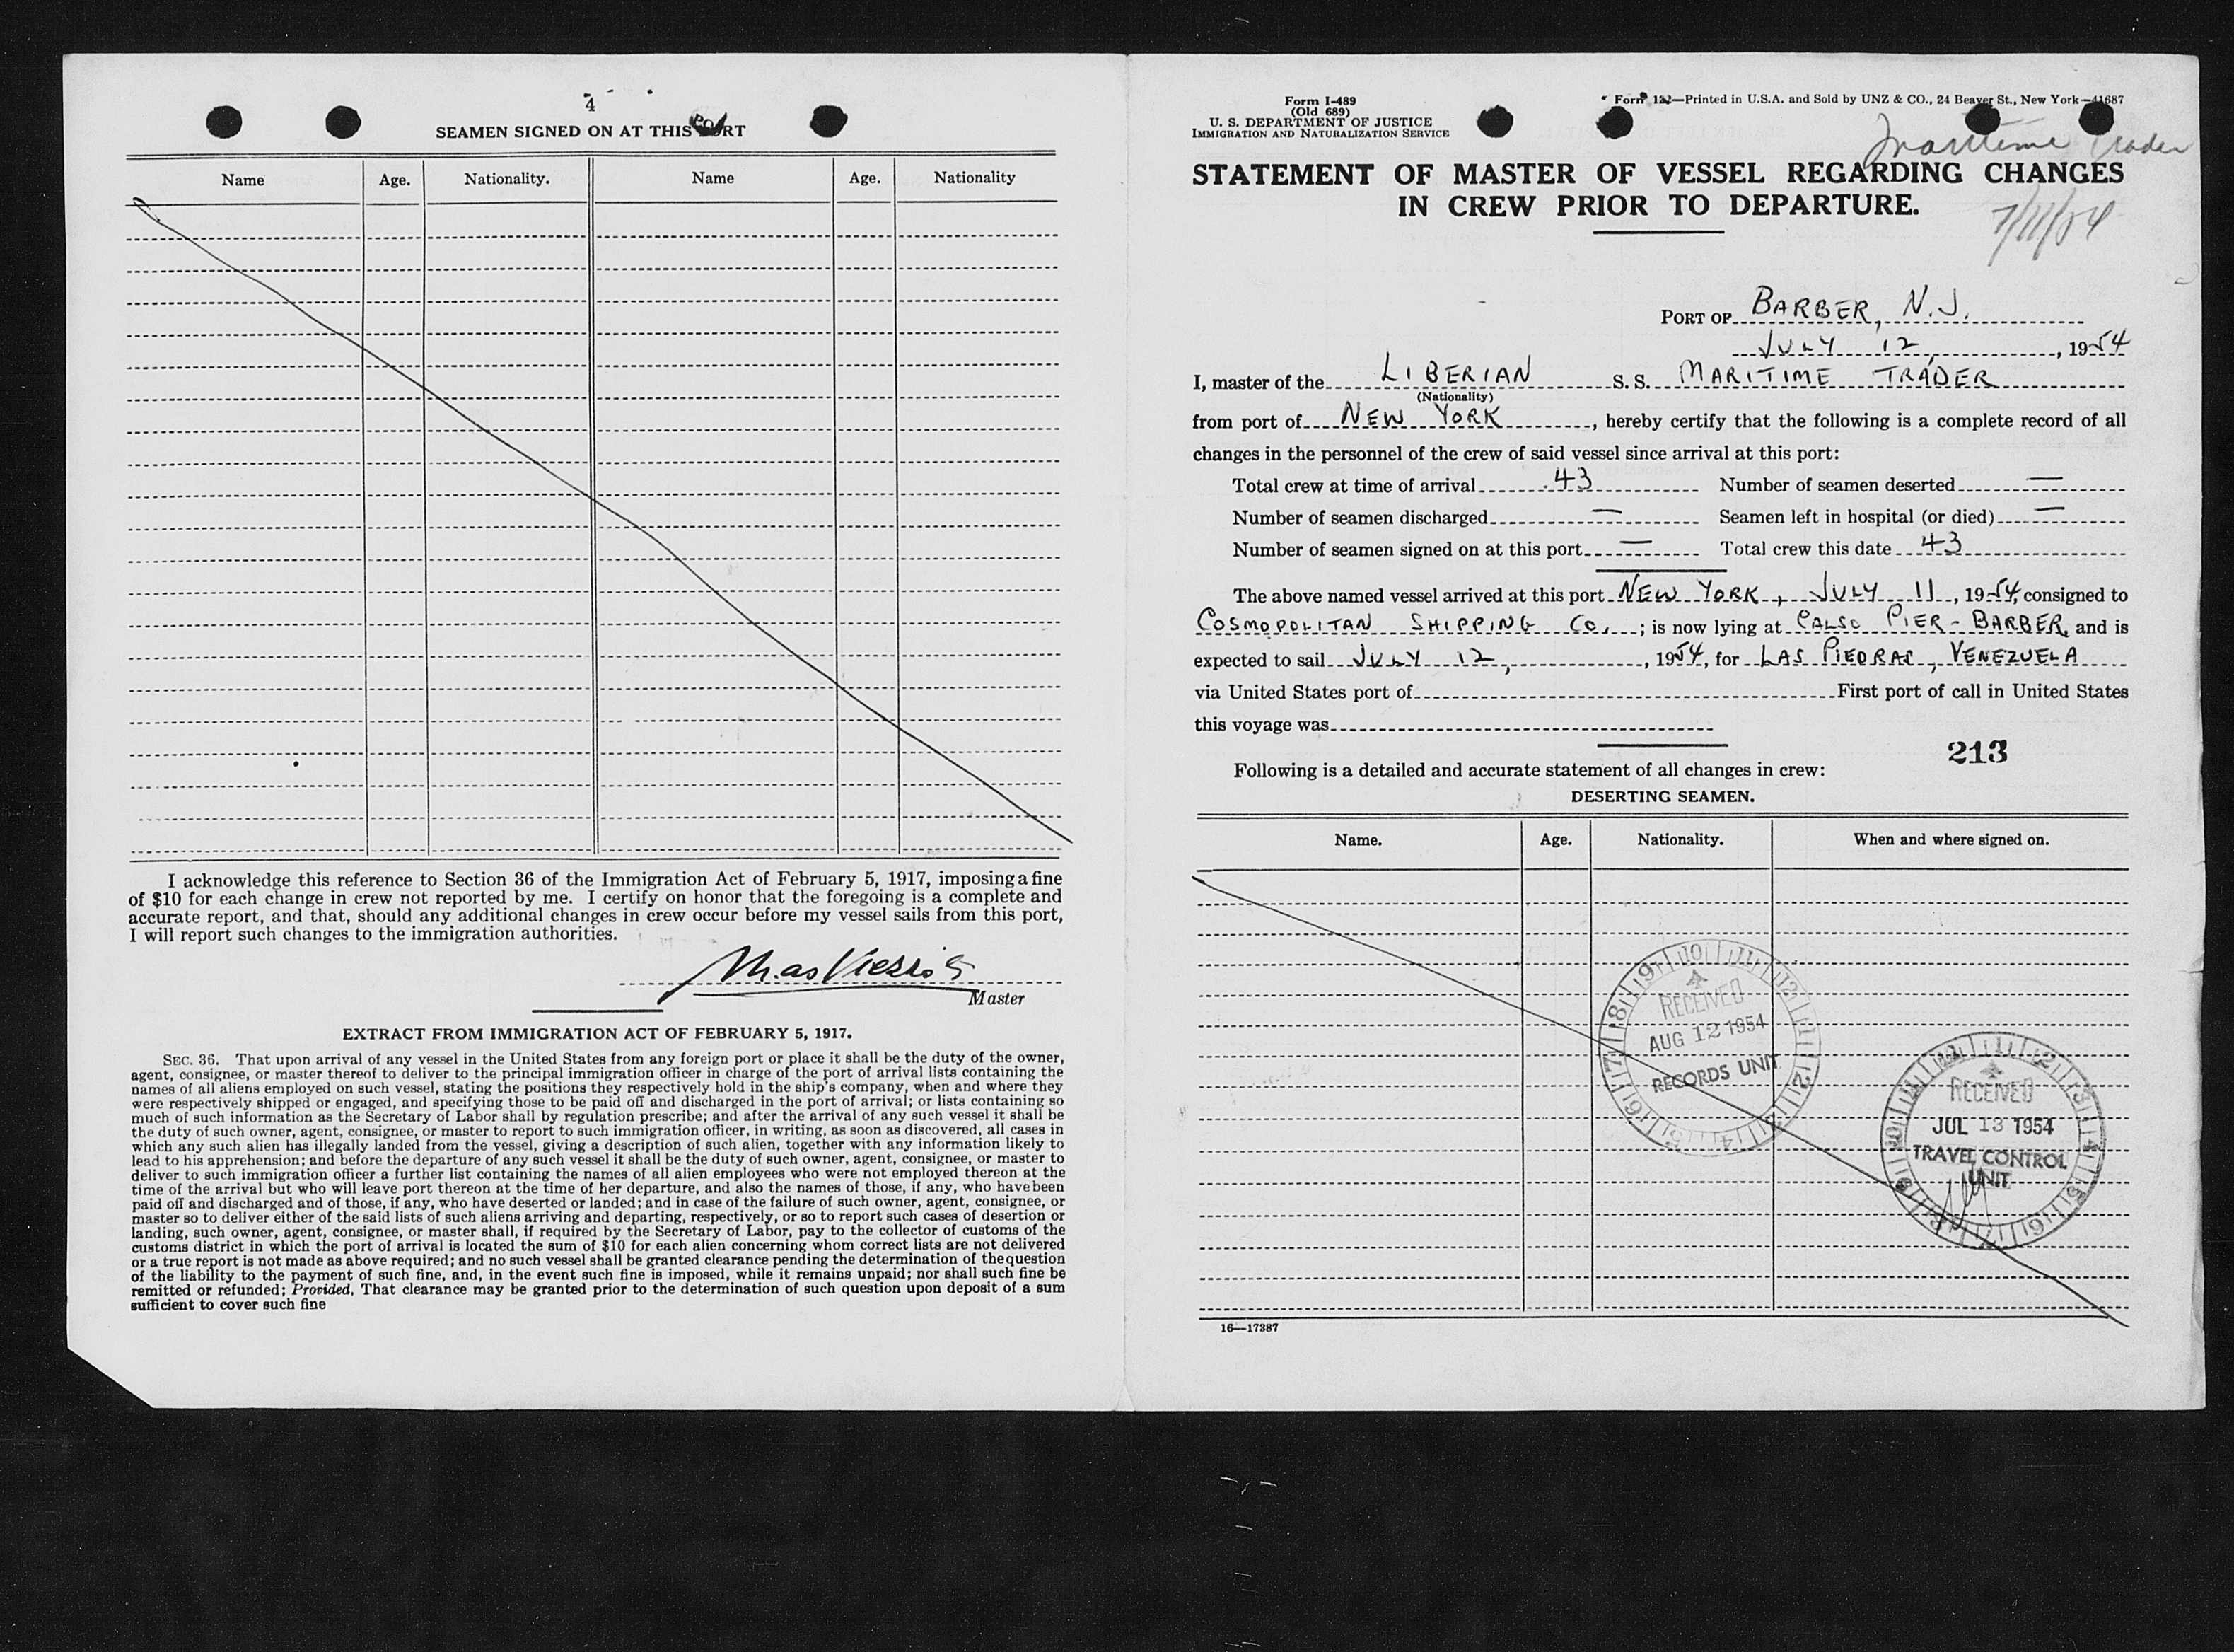 4
SEAMEN SIGNED ON AT THIS PORT
Name Age. Nationality. Name Age. Nationality
I acknowledge this reference to Section 36 of the Immigration Act of February 5, 1917, imposing a fine
of $10 for each change in crew not reported by me. I certify on honor that the foregoing is a complete and
accurate report, and that, should any additional changes in crew occur before my vessel sails from this port,
I will report such changes to the immigration authorities.
Master
EXTRACT FROM IMMIGRATION ACT OF FEBRUARY 5, 1917.
SEC. 36. That upon arrival of any vessel in the United States from any foreign port or place it shall be the duty of the owner,
agent, consignee, or master thereof to deliver to the principal immigration officer in charge of the port of arrival lists containing the
names of all aliens employed on such vessel, stating the positions they respectively hold in the ship's company, when and where they
were respectively shipped or engaged, and specifying those to be paid off and discharged in the port of arrival; or lists containing so
much of such information as the Secretary of Labor shall by regulation prescribe; and after the arrival of any such vessel it shall be
the duty of such owner, agent, consignee, or master to report to such immigration officer, in writing, as soon as discovered, all cases in
which any such alien has illegally landed from the vessel, giving a description of such alien, together with any information likely to
lead to his apprehension; and before the departure of any such vessel it shall be the duty of such owner, agent, consignee, or master to
deliver to such immigration officer a further list containing the names of all alien employees who were not employed thereon at the
time of the arrival but who will leave port thereon at the time of her departure, and also the names of those, if any, who have been
paid off and discharged and of those, if any, who have deserted or landed; and in case of the failure of such owner, agent, consignee, or
master so to deliver either of the said lists of such aliens arriving and departing, respectively, or so to report such cases of desertion or
landing, such owner, agent, consignee, or master shall, if required by the Secretary of Labor, pay to the collector of customs of the
customs district in which the port of arrival is located the sum of $10 for each alien concerning whom correct lists are not delivered
or a true report is not made as above required; and no such vessel shall be granted clearance pending the determination of the question
of the liability to the payment of such fine, and, in the event such fine is imposed, while it remains unpaid; nor shall such fine be
remitted or refunded; Provided, That clearance may be granted prior to the determination of such question upon deposit of a sum
sufficient to cover such fine
Form I-489
(Old 689)
U. S. DEPARTMENT OF JUSTICE
IMMIGRATION AND NATURALIZATION SERVICE
Form 122—Printed in U.S.A. and Sold by UNZ & CO., 24 Beaver St., New York—41687
Maritime Trader
STATEMENT OF MASTER OF VESSEL REGARDING CHANGES
IN CREW PRIOR TO DEPARTURE.
7/11/54
PORT OF BARBER, N.J.
JULY 12, 1954
I, master of the LIBERIAN S. S. MARITIME TRADER
(Nationality)
from port of NEW YORK, hereby certify that the following is a complete record of all
changes in the personnel of the crew of said vessel since arrival at this port:
Total crew at time of arrival 43 Number of seamen deserted —
Number of seamen discharged — Seamen left in hospital (or died) —
Number of seamen signed on at this port — Total crew this date 43
The above named vessel arrived at this port NEW YORK, JULY 11, 1954, consigned to
COSMOPOLITAN SHIPPING CO.; is now lying at CALSO PIER - BARBER, and is
expected to sail JULY 12, 1954, for LAS PIEDRAS, VENEZUELA
via United States port of First port of call in United States
this voyage was
213
Following is a detailed and accurate statement of all changes in crew:
DESERTING SEAMEN.
Name. Age. Nationality. When and where signed on.
RECEIVED
AUG 12 1954
RECORDS UNIT
RECEIVED
JUL 13 1954
TRAVEL CONTROL
UNIT
16—17387